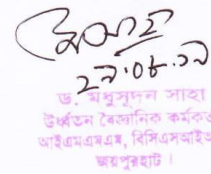 ২৯.০৮.১৯
ড. মধুসূদন সাহা
উর্ধ্বতন বৈজ্ঞানিক কর্মকর্
আইএমএমএম, বিসিএসআইআ
জয়পুরহাট।